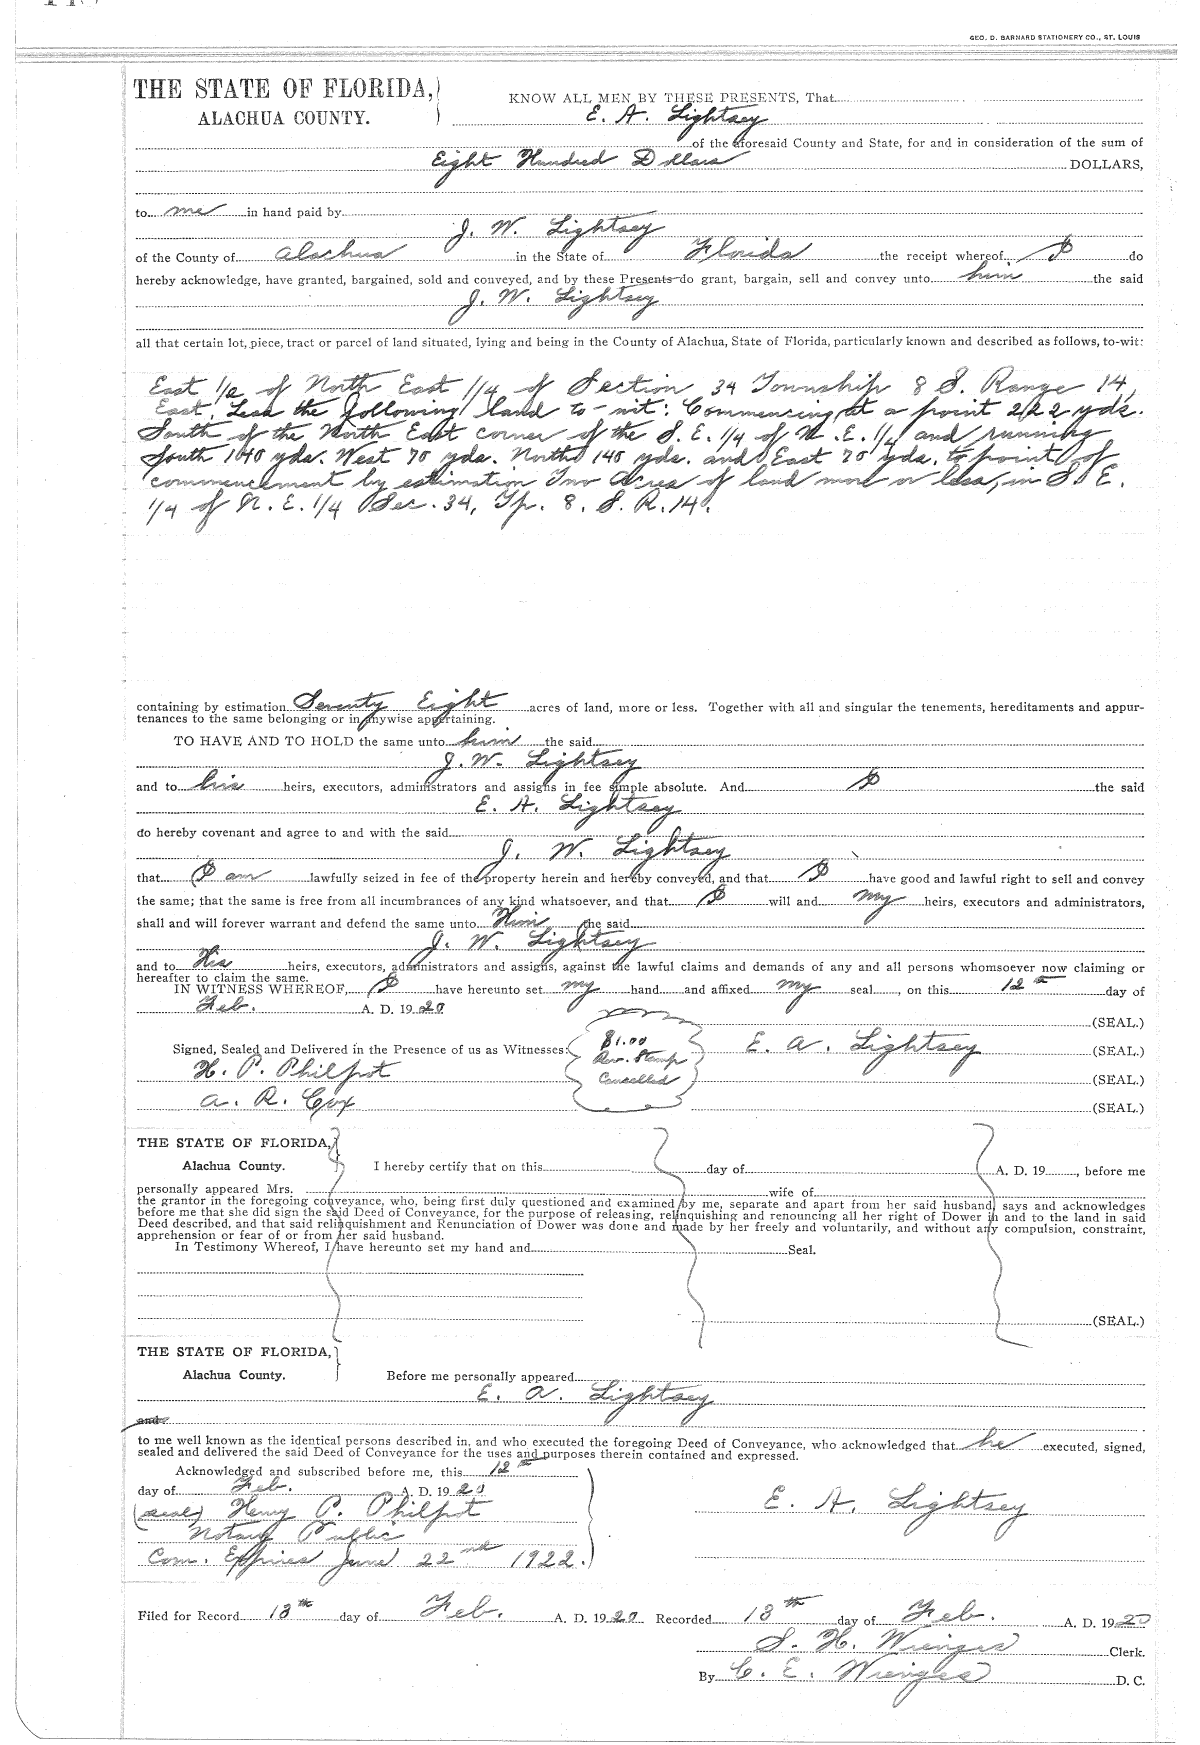 GEO. D. BARNARD STATIONERY CO., ST. LOUIS
THE STATE OF FLORIDA,
ALACHUA COUNTY.
KNOW ALL MEN BY THESE PRESENTS, That
E. A. Lightsey
of the aforesaid County and State, for and in consideration of the sum of
Eight Hundred Dollars DOLLARS,
to me in hand paid by
J. W. Lightsey
of the County of Alachua in the State of Florida the receipt whereof I do
hereby acknowledge, have granted, bargained, sold and conveyed, and by these Presents do grant, bargain, sell and convey unto him the said
J. W. Lightsey
all that certain lot, piece, tract or parcel of land situated, lying and being in the County of Alachua, State of Florida, particularly known and described as follows, to-wit:
East 1/2 of North East 1/4 of Section 34 Township 8 S. Range 14,
East, Less the following land to-wit: Commencing at a point 222 yds.
South of the North East corner of the S. E. 1/4 of N. E. 1/4 and running
South 140 yds. West 70 yds. North 140 yds. and East 70 yds. to point of
commencement by estimation Two Acres of land more or less, in S. E.
1/4 of N. E. 1/4 Sec. 34, Tp. 8. S. R. 14.
containing by estimation Seventy Eight acres of land, more or less. Together with all and singular the tenements, hereditaments and appur-
tenances to the same belonging or in anywise appertaining.
TO HAVE AND TO HOLD the same unto him the said
J. W. Lightsey
and to his heirs, executors, administrators and assigns in fee simple absolute. And I the said
E. A. Lightsey
do hereby covenant and agree to and with the said
J. W. Lightsey
that I am lawfully seized in fee of the property herein and hereby conveyed, and that I have good and lawful right to sell and convey
the same; that the same is free from all incumbrances of any kind whatsoever, and that I will and my heirs, executors and administrators,
shall and will forever warrant and defend the same unto Him the said
J. W. Lightsey
and to His heirs, executors, administrators and assigns, against the lawful claims and demands of any and all persons whomsoever now claiming or
hereafter to claim the same.
IN WITNESS WHEREOF, I have hereunto set my hand and affixed my seal, on this 12th day of
Feb. A. D. 1920
(SEAL.)
Signed, Sealed and Delivered in the Presence of us as Witnesses: $1.00 E. A. Lightsey (SEAL.)
H. P. Philpot Rev. Stamp Cancelled (SEAL.)
A. R. Cox (SEAL.)
THE STATE OF FLORIDA,
Alachua County. I hereby certify that on this day of A. D. 19 , before me
personally appeared Mrs. wife of
the grantor in the foregoing conveyance, who, being first duly questioned and examined by me, separate and apart from her said husband, says and acknowledges
before me that she did sign the said Deed of Conveyance, for the purpose of releasing, relinquishing and renouncing all her right of Dower in and to the land in said
Deed described, and that said relinquishment and Renunciation of Dower was done and made by her freely and voluntarily, and without any compulsion, constraint,
apprehension or fear of or from her said husband.
In Testimony Whereof, I have hereunto set my hand and Seal.
(SEAL.)
THE STATE OF FLORIDA,
Alachua County. Before me personally appeared
E. A. Lightsey
and
to me well known as the identical persons described in, and who executed the foregoing Deed of Conveyance, who acknowledged that he executed, signed,
sealed and delivered the said Deed of Conveyance for the uses and purposes therein contained and expressed.
Acknowledged and subscribed before me, this 12th
day of Feb. A. D. 1920
(seal) Henry P. Philpot E. A. Lightsey
Notary Public
Com. Expires June 22nd 1922.
Filed for Record 13th day of Feb. A. D. 1920 Recorded 13th day of Feb. A. D. 1920
S. H. Wienges Clerk.
By C. E. Wienges D. C.